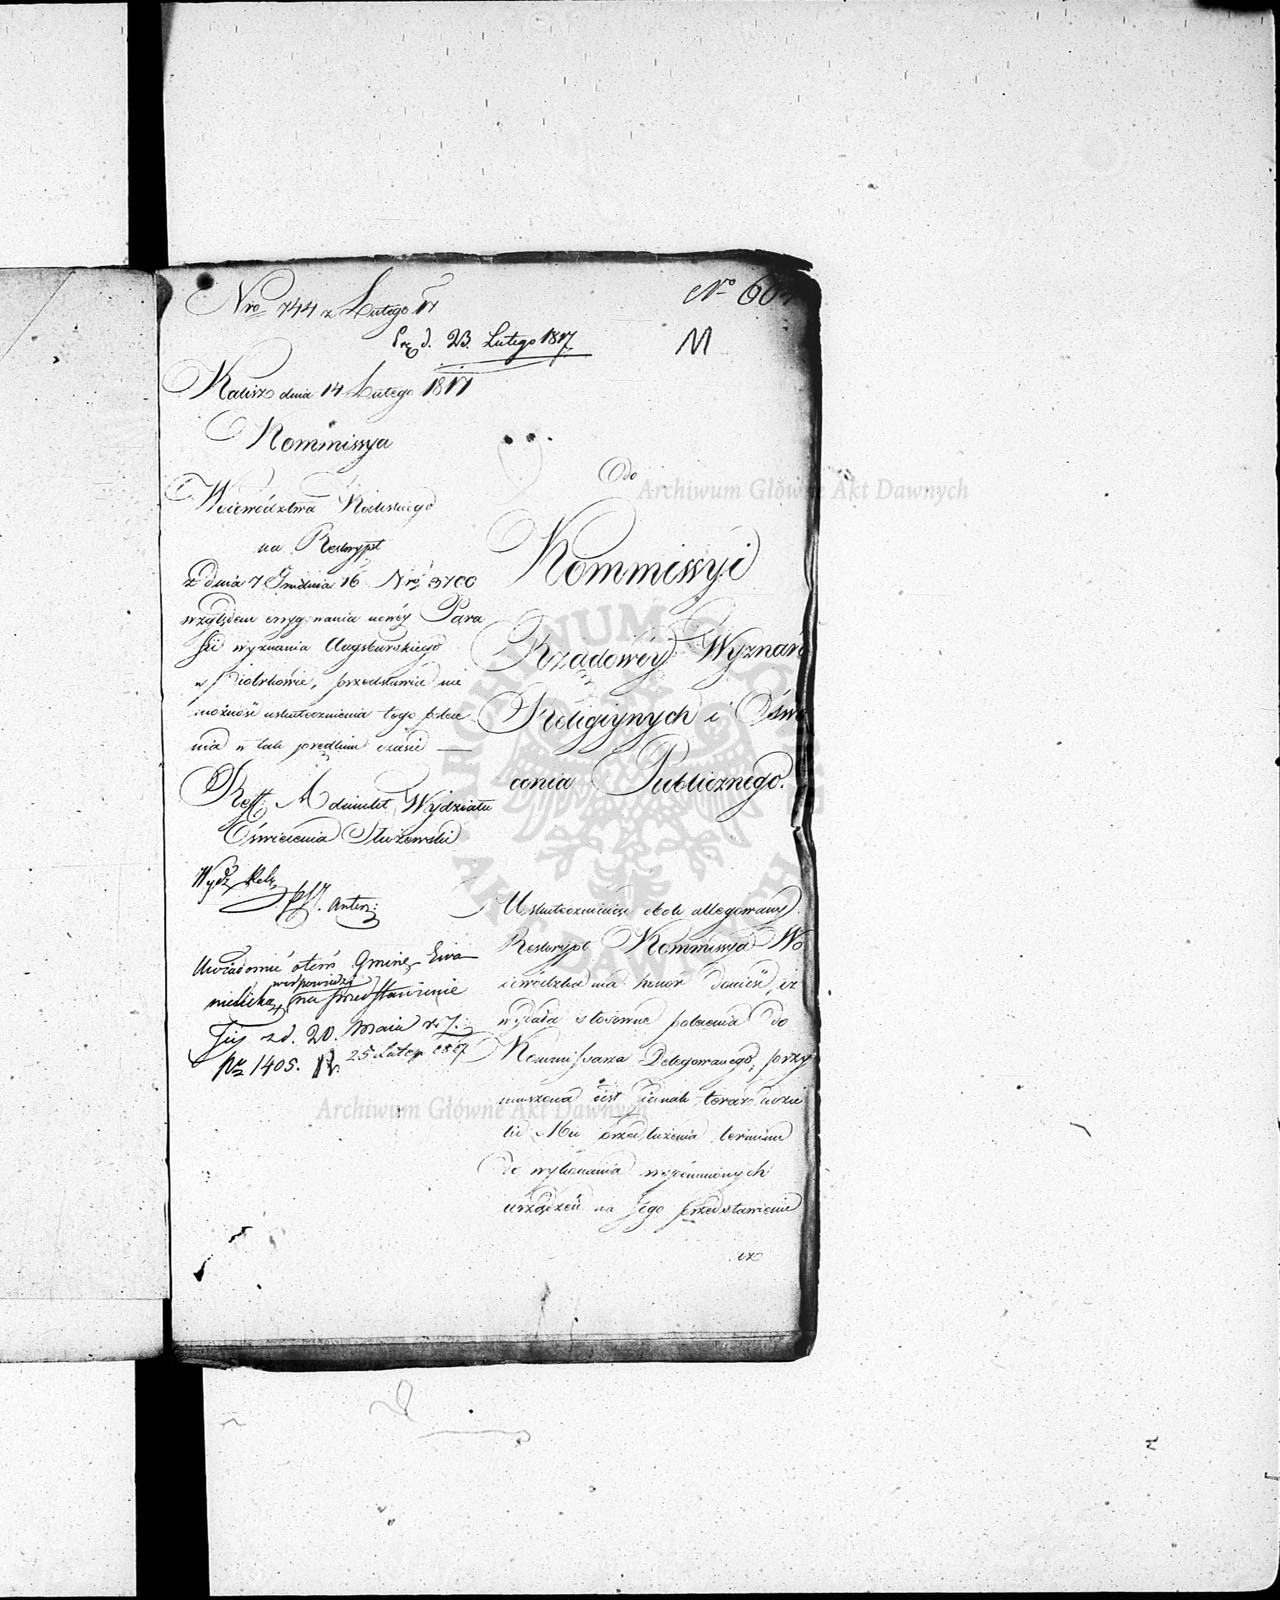 Nro 744 z Lutego 17
Prz d. 23. Lutego 1817
No 60
M
Kalisz dnia 14 Lutego 1817
Kommissya
Woiewództwa Kaliskiego
na Reskrypt
z dnia 7 Grudnia 16 Nro 3700
względem erygowania nowéy Para
fii wyznania Augsburskiego
w Piotrkowie, przedstawia nie
możność uskutecznienia tego polece
nia w tak prędkim czasie —
Reff: Adiunkt Wydziału
Oświecenia Służewski
Wydz. Relig.
Anten:
Uwiadomić o tem Gminę Ewa
nielicką
w odpowiedzi
na przedstawienie
Jej z d. 20. Maia r. z.
Nr 1405.
25 Lutego 1817
Do
Kommissyi
Rządowéy Wyznań
Religiynych i Oświe
cenia Publicznego.
Uskuteczniaiąc obok allegowany
Reskrypt Kommissya Wo
iewódzka ma honor donieść, iż
wydała stosowne polecenia do
Kommissarza Delegowanego, przy
muszona iest iednak teraz udzie
lić Mu przedłużenia terminu
do wykonania wspomnionych
urządzeń na Jego przedstawienie
iż
Archiwum Główne Akt Dawnych
Archiwum Główne Akt Dawnych
ARCHIWUM GŁÓWNE AKT DAWNYCH